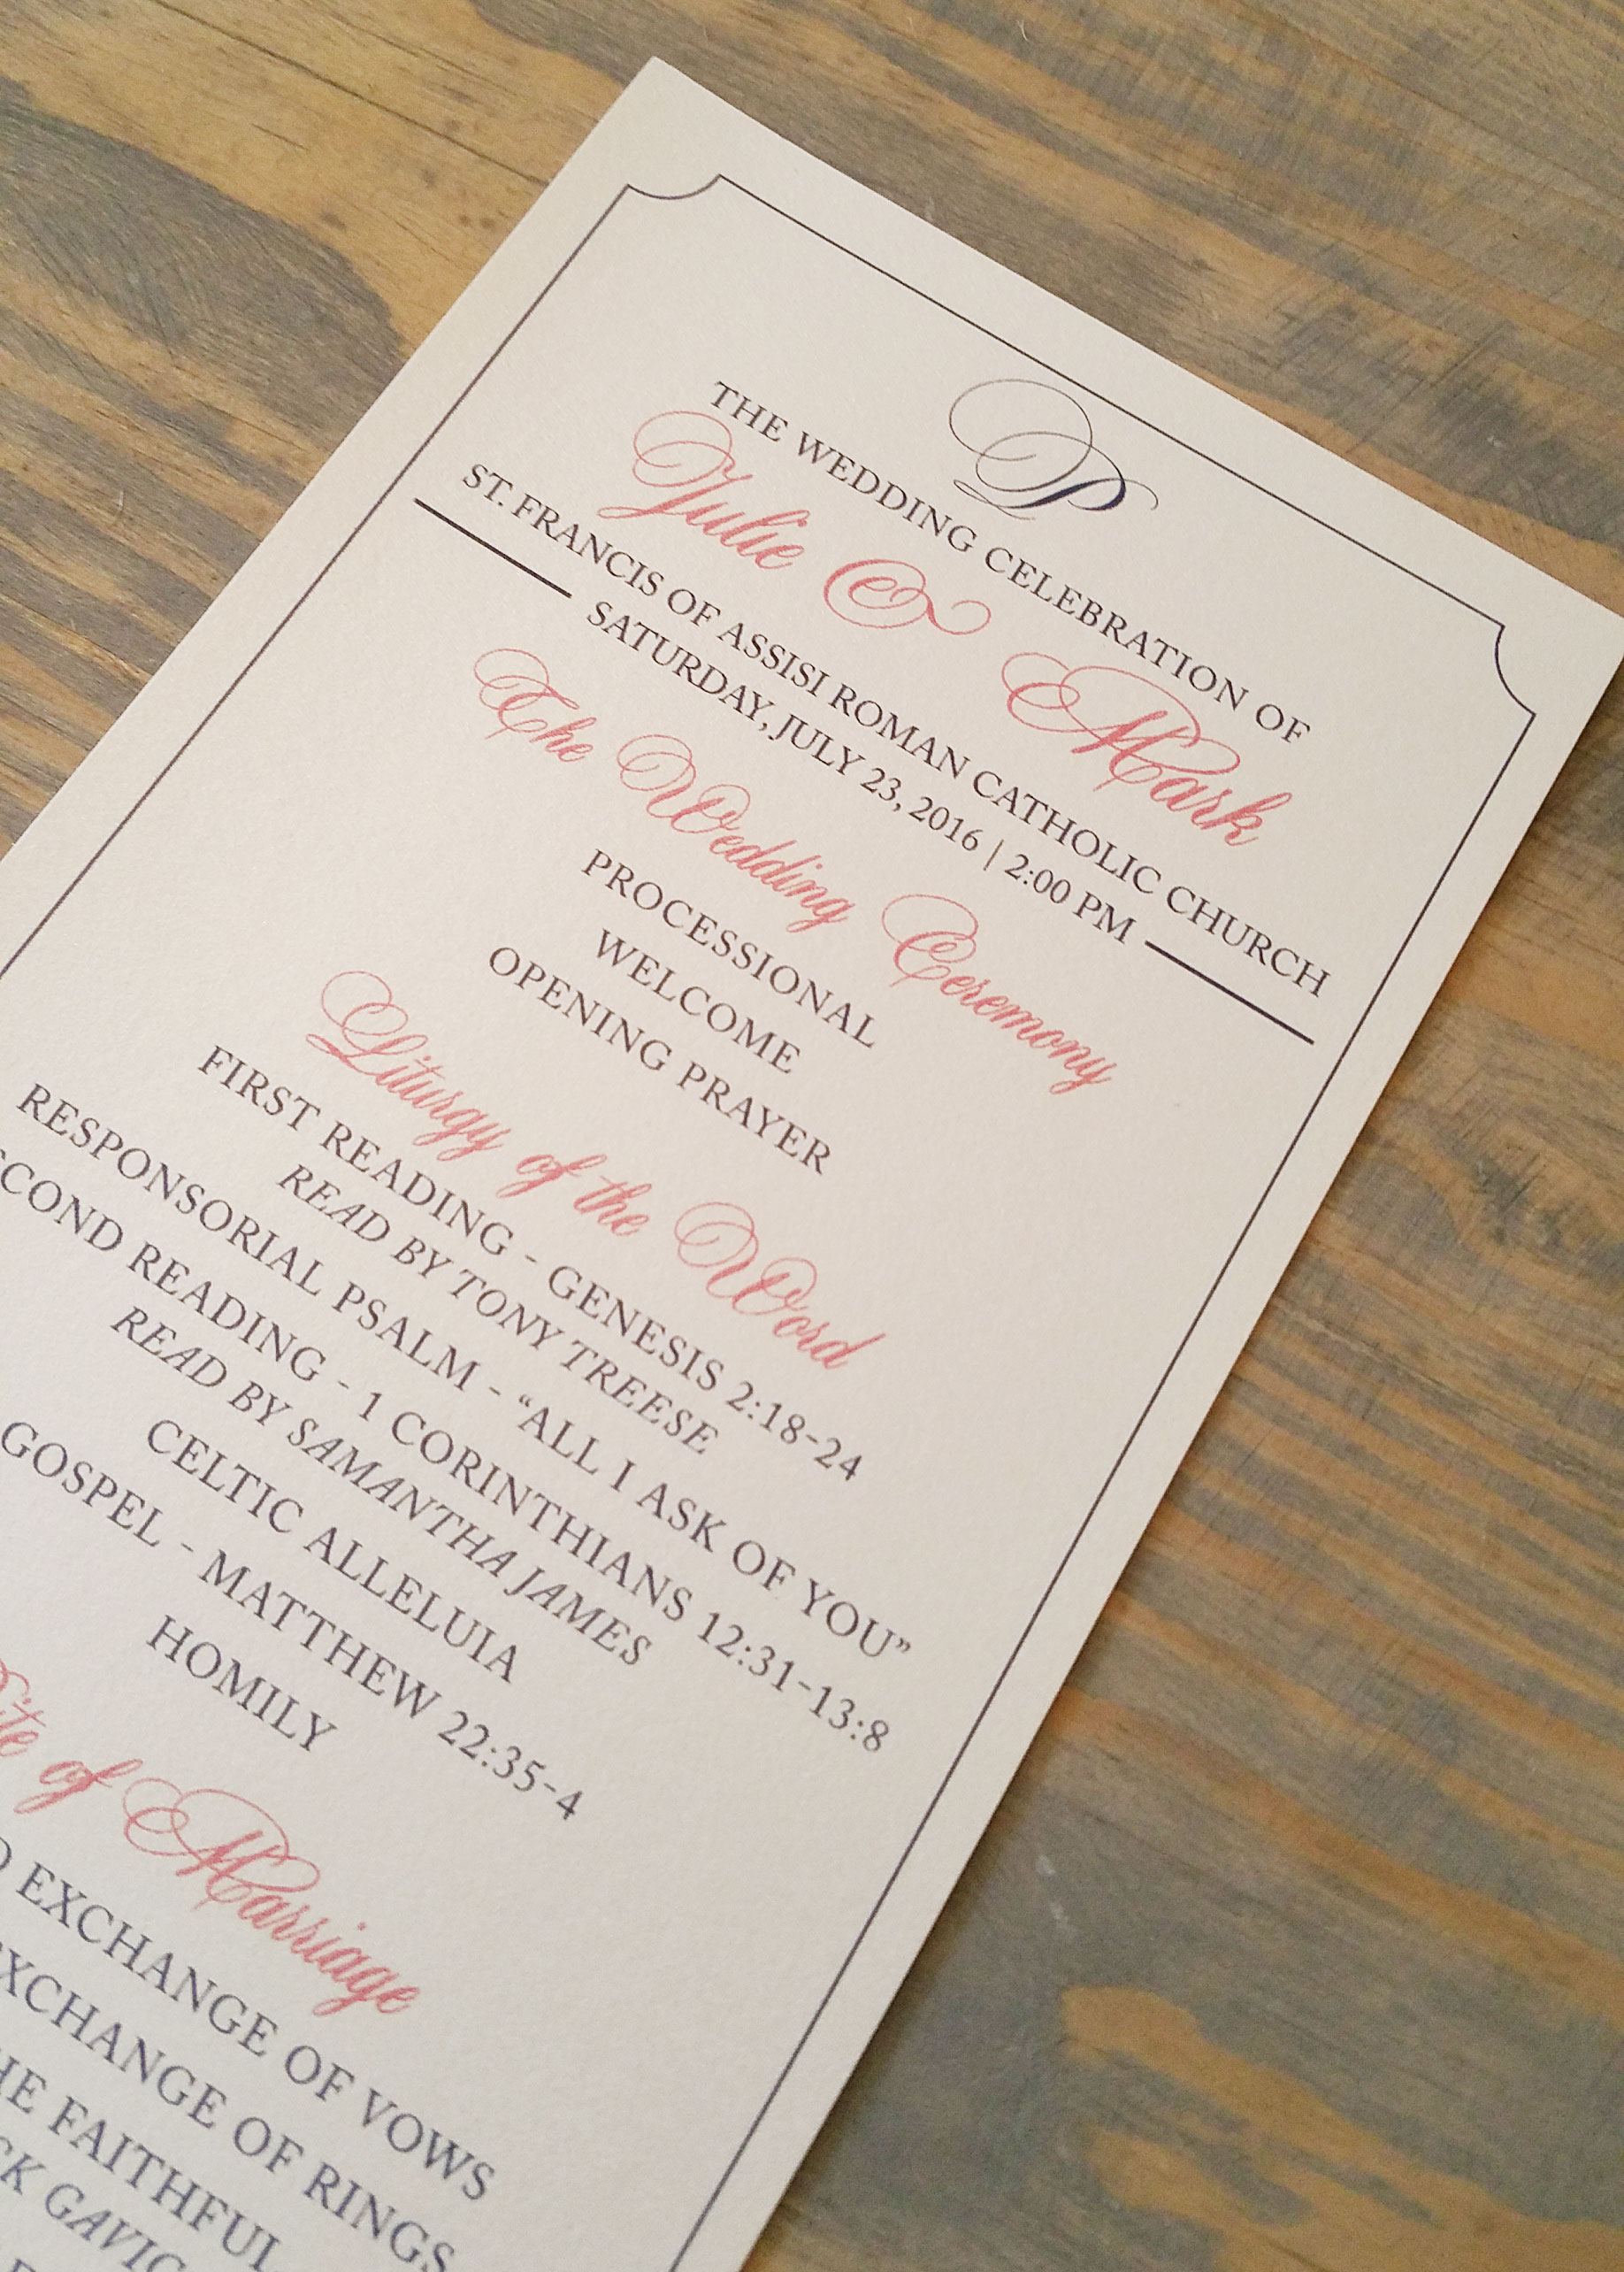 P
THE WEDDING CELEBRATION OF
Julie & Mark
ST. FRANCIS OF ASSISI ROMAN CATHOLIC CHURCH
SATURDAY, JULY 23, 2016 | 2:00 PM
The Wedding Ceremony
PROCESSIONAL
WELCOME
OPENING PRAYER
Liturgy of the Word
FIRST READING - GENESIS 2:18-24
READ BY TONY TREESE
RESPONSORIAL PSALM - “ALL I ASK OF YOU”
READING - 1 CORINTHIANS 12:31-13:8
READ BY SAMANTHA JAMES
CELTIC ALLELUIA
GOSPEL - MATTHEW 22:35-4
HOMILY
of Marriage
EXCHANGE OF VOWS
EXCHANGE OF RINGS
FAITHFUL